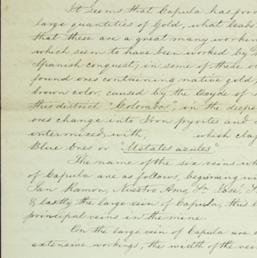 It seems that Capula has pro
large quantities of Gold, what leads
that these are a great many workin
which seem to have been worked by
Spanish conquest; in some of these o
found ones containing native gold,
brown color, caused by the Oxyde of
this district "Colorados", in the deepe
ones change into Iron pyrites and
intermixed with, which
Blue Ones or "Metales azules"
The name of the six veins wh
of Capula are as follows, beginning
San Ramon, Nuestro Amo, Sn. José,
& lastly the large vein of Capula, this
principal veins in the mine.
On the large vein of Capula are
extensive workings, the width of the vei